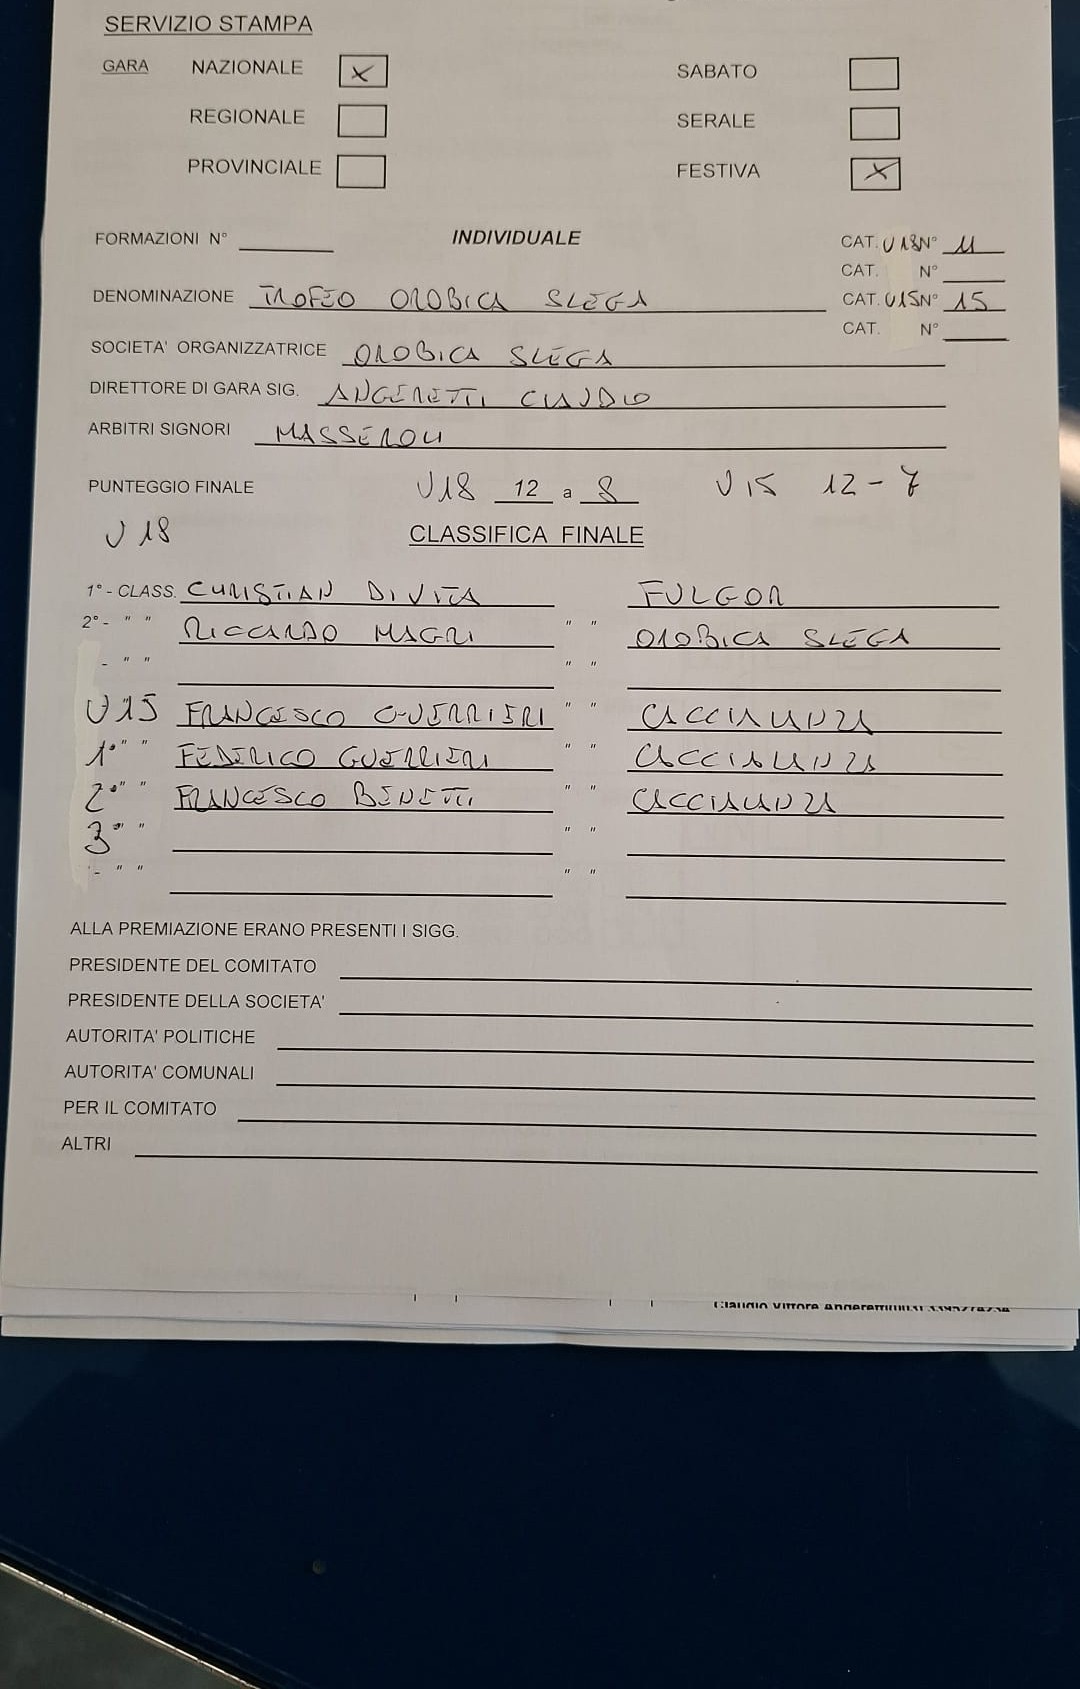 SERVIZIO STAMPA
GARA NAZIONALE X SABATO
REGIONALE SERALE
PROVINCIALE FESTIVA X
FORMAZIONI N° INDIVIDUALE CAT. U18 N° 11
CAT. N°
DENOMINAZIONE TROFEO OROBICA SLEGA CAT. U15 N° 15
CAT. N°
SOCIETA' ORGANIZZATRICE OROBICA SLEGA
DIRETTORE DI GARA SIG. ANGERETTI CLAUDIO
ARBITRI SIGNORI MASSEROLI
PUNTEGGIO FINALE U18 12 a 8 U15 12-7
U 18 CLASSIFICA FINALE
1° - CLASS. CHRISTIAN DI VITA FULGOR
2° - " " RICCARDO MAGRI " " OROBICA SLEGA
- " " " "
U15 FRANCESCO GUERRIERI " " CACCIALANZA
1° " " FEDERICO GUERRIERI " " CACCIALANZA
2° " " FRANCESCO BENETTI " " CACCIALANZA
3° " " " "
- " " " "
ALLA PREMIAZIONE ERANO PRESENTI I SIGG.
PRESIDENTE DEL COMITATO
PRESIDENTE DELLA SOCIETA'
AUTORITA' POLITICHE
AUTORITA' COMUNALI
PER IL COMITATO
ALTRI
Claudio Vittore